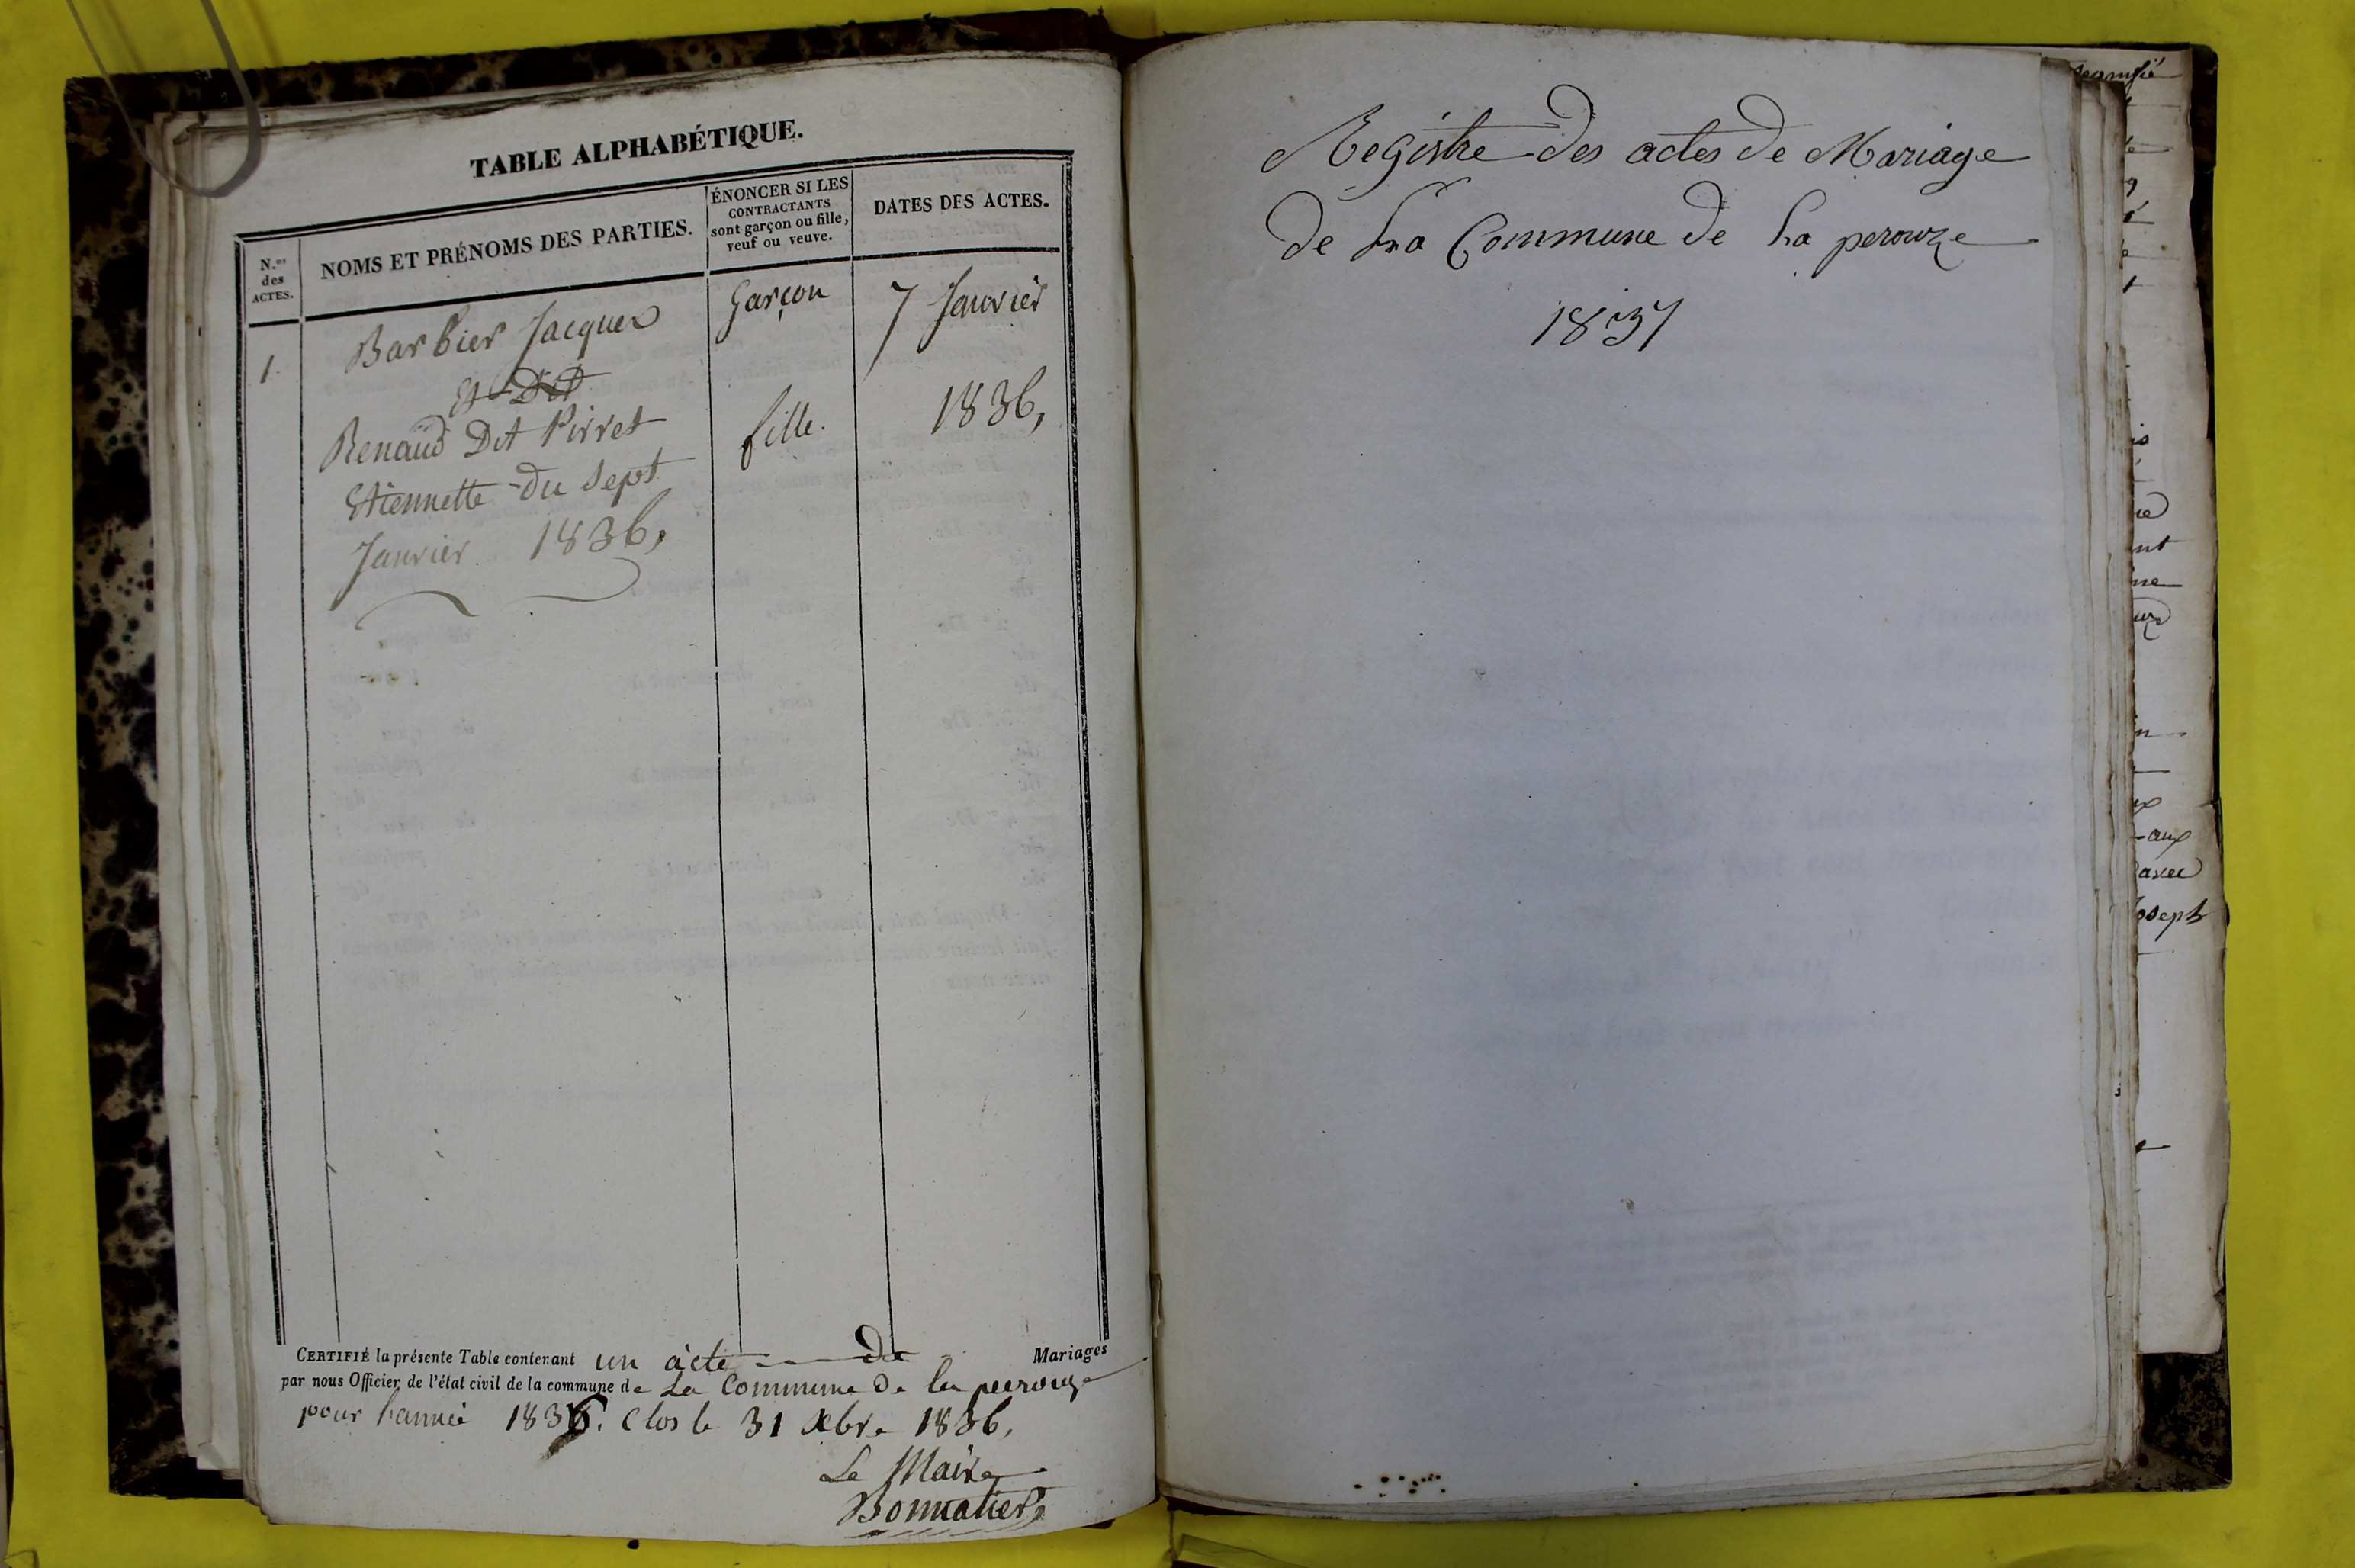 TABLE ALPHABÉTIQUE.
N.os des ACTES.
NOMS ET PRÉNOMS DES PARTIES.
ÉNONCER SI LES
CONTRACTANTS
sont garçon ou fille,
veuf ou veuve.
DATES DES ACTES.
1. Barbier Jacques garçon 7 Janvier
Et Dit
Renaud Dit Pirret fille. 1836,
Etiennette du Sept
Janvier 1836,
CERTIFIÉ la présente Table contenant un acte de Mariages
par nous Officier de l'état civil de la commune de La Commune de la perouze
pour l'année 1836. Clos le 31 Xbre 1836,
Le Maire
Bonnatier
Registre des actes de Mariage
de La Commune de La perouze
1837
aux
avec
oseph